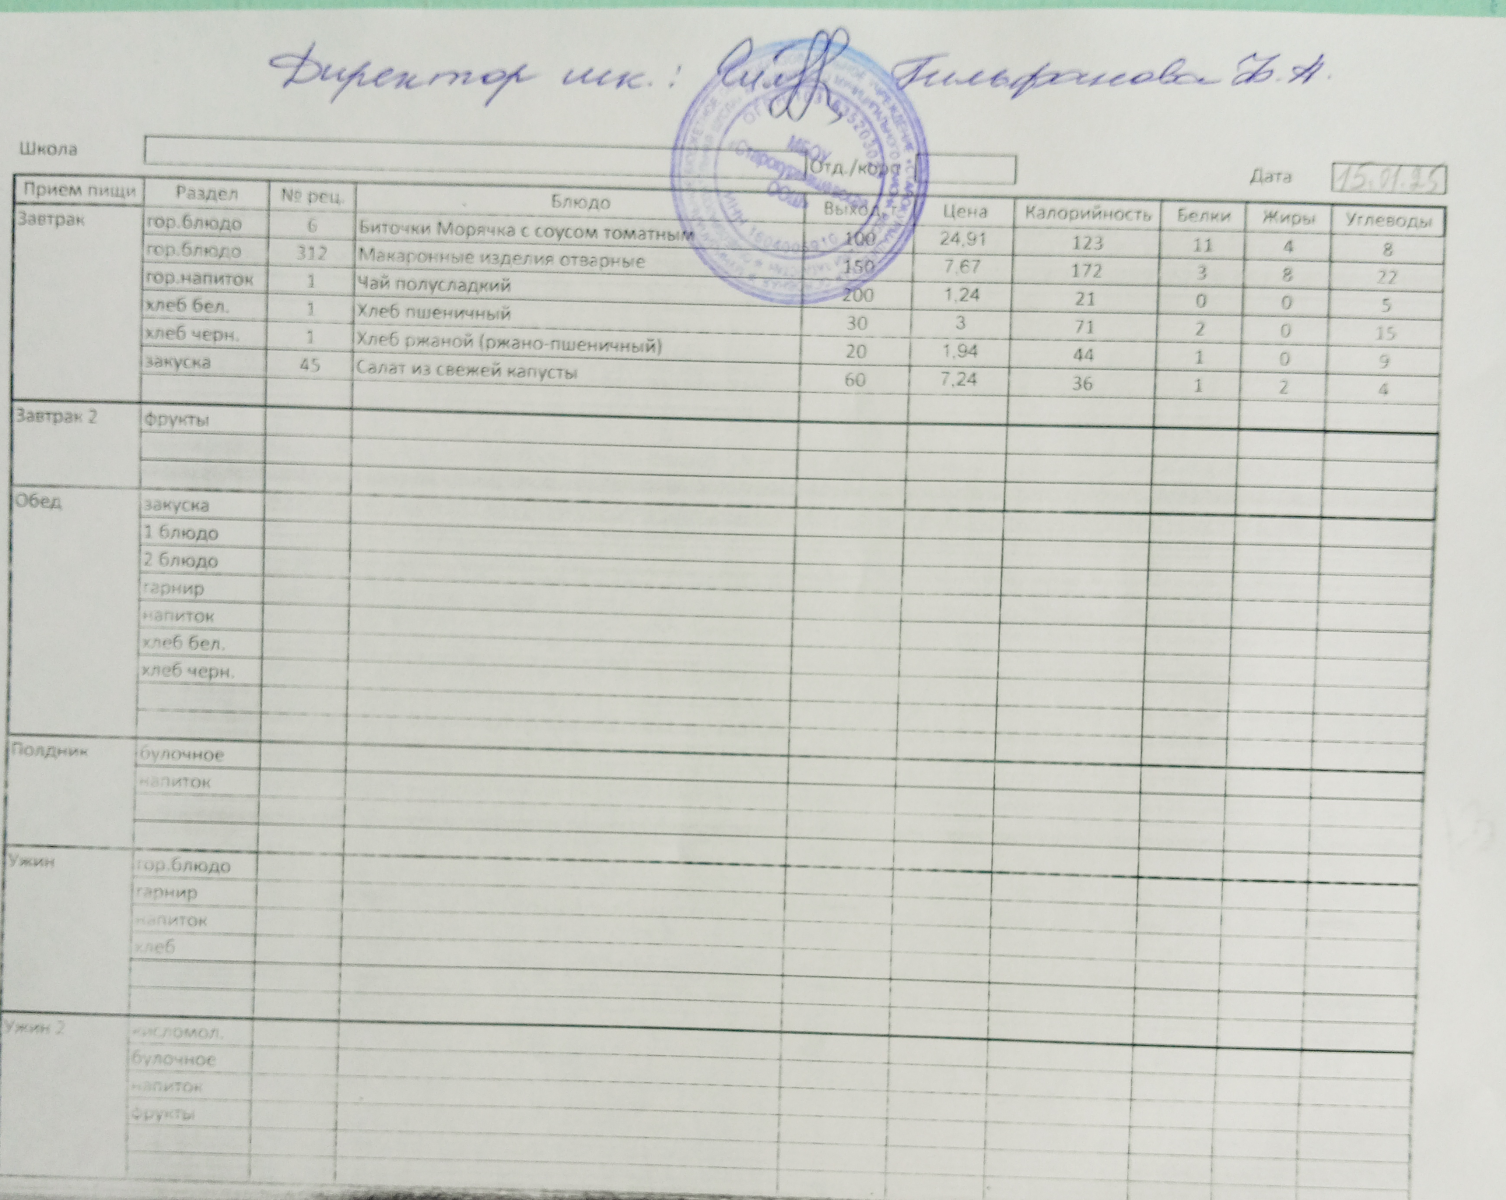 Директор шк.: Гильфанова Ф.А.
Школа Отд./корп Дата 15.01.25
Прием пищи Раздел № рец. Блюдо Выход, г Цена Калорийность Белки Жиры Углеводы
Завтрак гор.блюдо 6 Биточки Морячка с соусом томатным 100 24,91 123 11 4 8
гор.блюдо 312 Макаронные изделия отварные 150 7,67 172 3 8 22
гор.напиток 1 Чай полусладкий 200 1,24 21 0 0 5
хлеб бел. 1 Хлеб пшеничный 30 3 71 2 0 15
хлеб черн. 1 Хлеб ржаной (ржано-пшеничный) 20 1,94 44 1 0 9
закуска 45 Салат из свежей капусты 60 7,24 36 1 2 4
Завтрак 2 фрукты
Обед закуска
1 блюдо
2 блюдо
гарнир
напиток
хлеб бел.
хлеб черн.
Полдник булочное
напиток
Ужин гор.блюдо
гарнир
напиток
хлеб
Ужин 2 кисломол.
булочное
напиток
фрукты
МБОУ